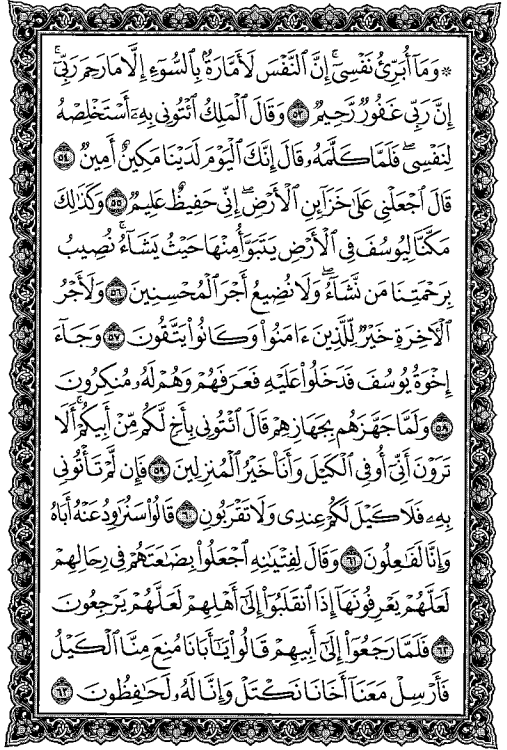 ۞ وَمَآ أُبَرِّئُ نَفْسِيٓۚ إِنَّ ٱلنَّفْسَ لَأَمَّارَةُۢ بِٱلسُّوٓءِ إِلَّا مَا رَحِمَ رَبِّيٓۚ
إِنَّ رَبِّي غَفُورٞ رَّحِيمٞ ٥٣ وَقَالَ ٱلْمَلِكُ ٱئْتُونِي بِهِۦٓ أَسْتَخْلِصْهُ
لِنَفْسِيۖ فَلَمَّا كَلَّمَهُۥ قَالَ إِنَّكَ ٱلْيَوْمَ لَدَيْنَا مَكِينٌ أَمِينٞ ٥٤
قَالَ ٱجْعَلْنِي عَلَىٰ خَزَآئِنِ ٱلْأَرْضِۖ إِنِّي حَفِيظٌ عَلِيمٞ ٥٥ وَكَذَٰلِكَ
مَكَّنَّا لِيُوسُفَ فِي ٱلْأَرْضِ يَتَبَوَّأُ مِنْهَا حَيْثُ يَشَآءُۚ نُصِيبُ
بِرَحْمَتِنَا مَن نَّشَآءُۖ وَلَا نُضِيعُ أَجْرَ ٱلْمُحْسِنِينَ ٥٦ وَلَأَجْرُ
ٱلْأٓخِرَةِ خَيْرٞ لِّلَّذِينَ ءَامَنُواْ وَكَانُواْ يَتَّقُونَ ٥٧ وَجَآءَ
إِخْوَةُ يُوسُفَ فَدَخَلُواْ عَلَيْهِ فَعَرَفَهُمْ وَهُمْ لَهُۥ مُنكِرُونَ
٥٨ وَلَمَّا جَهَّزَهُم بِجَهَازِهِمْ قَالَ ٱئْتُونِي بِأَخٖ لَّكُم مِّنْ أَبِيكُمْۚ أَلَا
تَرَوْنَ أَنِّيٓ أُوفِي ٱلْكَيْلَ وَأَنَا۠ خَيْرُ ٱلْمُنزِلِينَ ٥٩ فَإِن لَّمْ تَأْتُونِي
بِهِۦ فَلَا كَيْلَ لَكُمْ عِندِي وَلَا تَقْرَبُونِ ٦٠ قَالُواْ سَنُرَٰوِدُ عَنْهُ أَبَاهُ
وَإِنَّا لَفَٰعِلُونَ ٦١ وَقَالَ لِفِتْيَٰنِهِ ٱجْعَلُواْ بِضَٰعَتَهُمْ فِي رِحَالِهِمْ
لَعَلَّهُمْ يَعْرِفُونَهَآ إِذَا ٱنقَلَبُوٓاْ إِلَىٰٓ أَهْلِهِمْ لَعَلَّهُمْ يَرْجِعُونَ
٦٢ فَلَمَّا رَجَعُوٓاْ إِلَىٰٓ أَبِيهِمْ قَالُواْ يَٰٓأَبَانَا مُنِعَ مِنَّا ٱلْكَيْلُ
فَأَرْسِلْ مَعَنَآ أَخَانَا نَكْتَلْ وَإِنَّا لَهُۥ لَحَٰفِظُونَ ٦٣